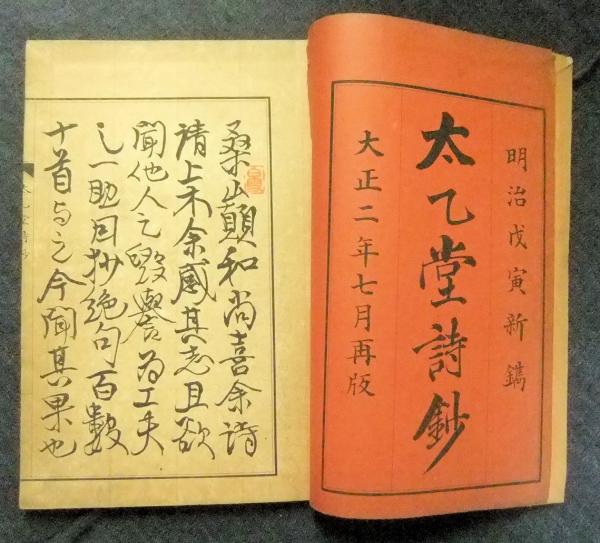 明治戊寅新鐫
太乙堂詩鈔
大正二年七月再版
桑山顛和尚喜余詩
請上木余感其志且欲
聞他人之毀譽為工夫
之一助因抄絶句百數
十首与之今聞其果也